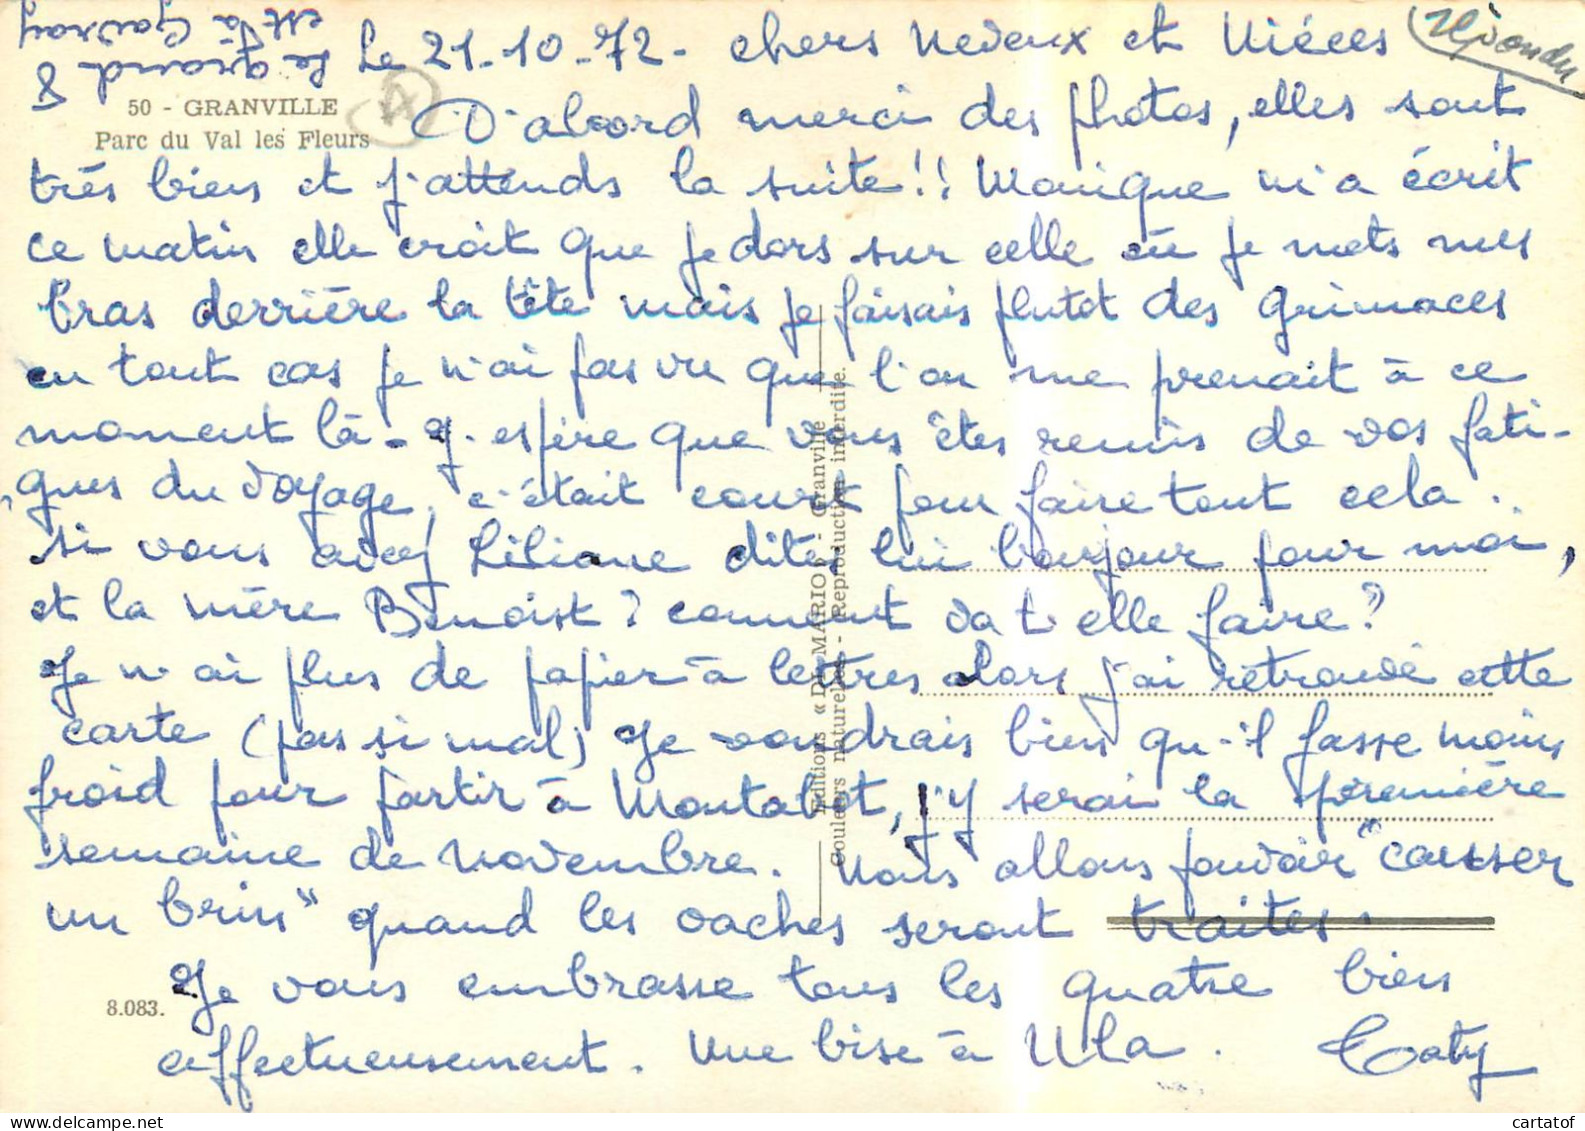 8 le grand
est à Gavray
Le 21-10-72 - chers Neveux et Nièces
Répondu
50 - GRANVILLE
Parc du Val les Fleurs
D'abord merci des photos, elles sont
très bien et j'attends la suite!! Monique m'a écrit
ce matin elle croit que je dors sur celle où je mets mes
bras derrière la tête mais je faisais plutot des grimaces
en tout cas je n'ai pas vu que l'on me prenait à ce
moment là - J'espère que vous êtes remis de vos fati-
gues du voyage, c'était court pour faire tout cela.
si vous avez Liliane dites lui bonjour pour moi,
et la mère Benoist ? comment va t-elle faire ?
Je n'ai plus de papier à lettres alors j'ai retrouvé cette
carte (pas si mal) Je voudrais bien qu'il fasse moins
froid pour partir à Montabot, j'y serai la première
semaine de novembre. Nous allons pouvoir "causser
un brin" quand les vaches seront traites.
Je vous embrasse tous les quatre bien
affectueusement. Une bise à Ula. Caty
8.083.
Editions « DE MARIO » - Granville
Couleurs naturelles - Reproduction interdite.